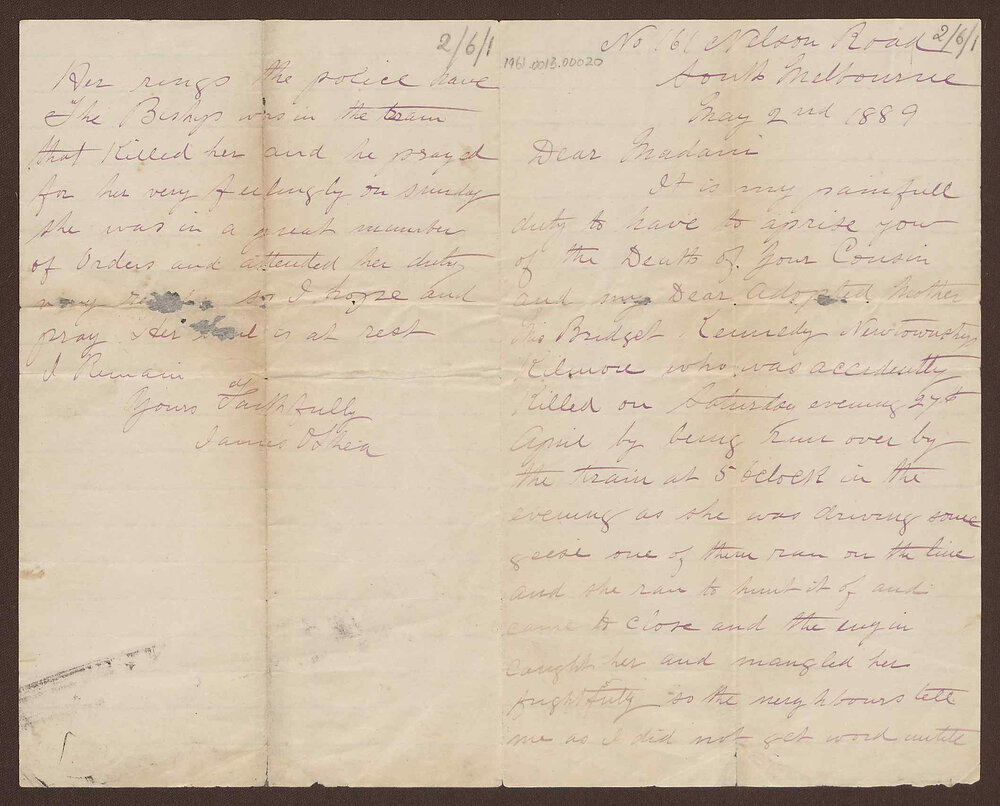 2/6/1
No 161 Nelson Road
1961.0013.00020
South Melbourne
May 2nd 1889
Dear Madam
It is my painfull
duty to have to aprise you
of the Death of Your Cousin
and my Dear Adopted Mother
Bridget Kennedy
Kilmore who was accidently
Killed on Saturday evening 27th
April by being run over by
the train at 5 oclock in the
evening as she was driving some
geese one of them ran on the line
and she ran to hunt it of and
came to close and the engin
caught her and mangled her
frightfully so the neighbours tell
me as I did not get word untill
2/6/1
Her rings the police have
The Bishop was in the train
that Killed her and he prayed
for her very feelingly on sunday
she was in a great number
of Orders and attended her duty
so I hope and
pray Her is at rest
I Remain
Yours Faithfully
James OShea